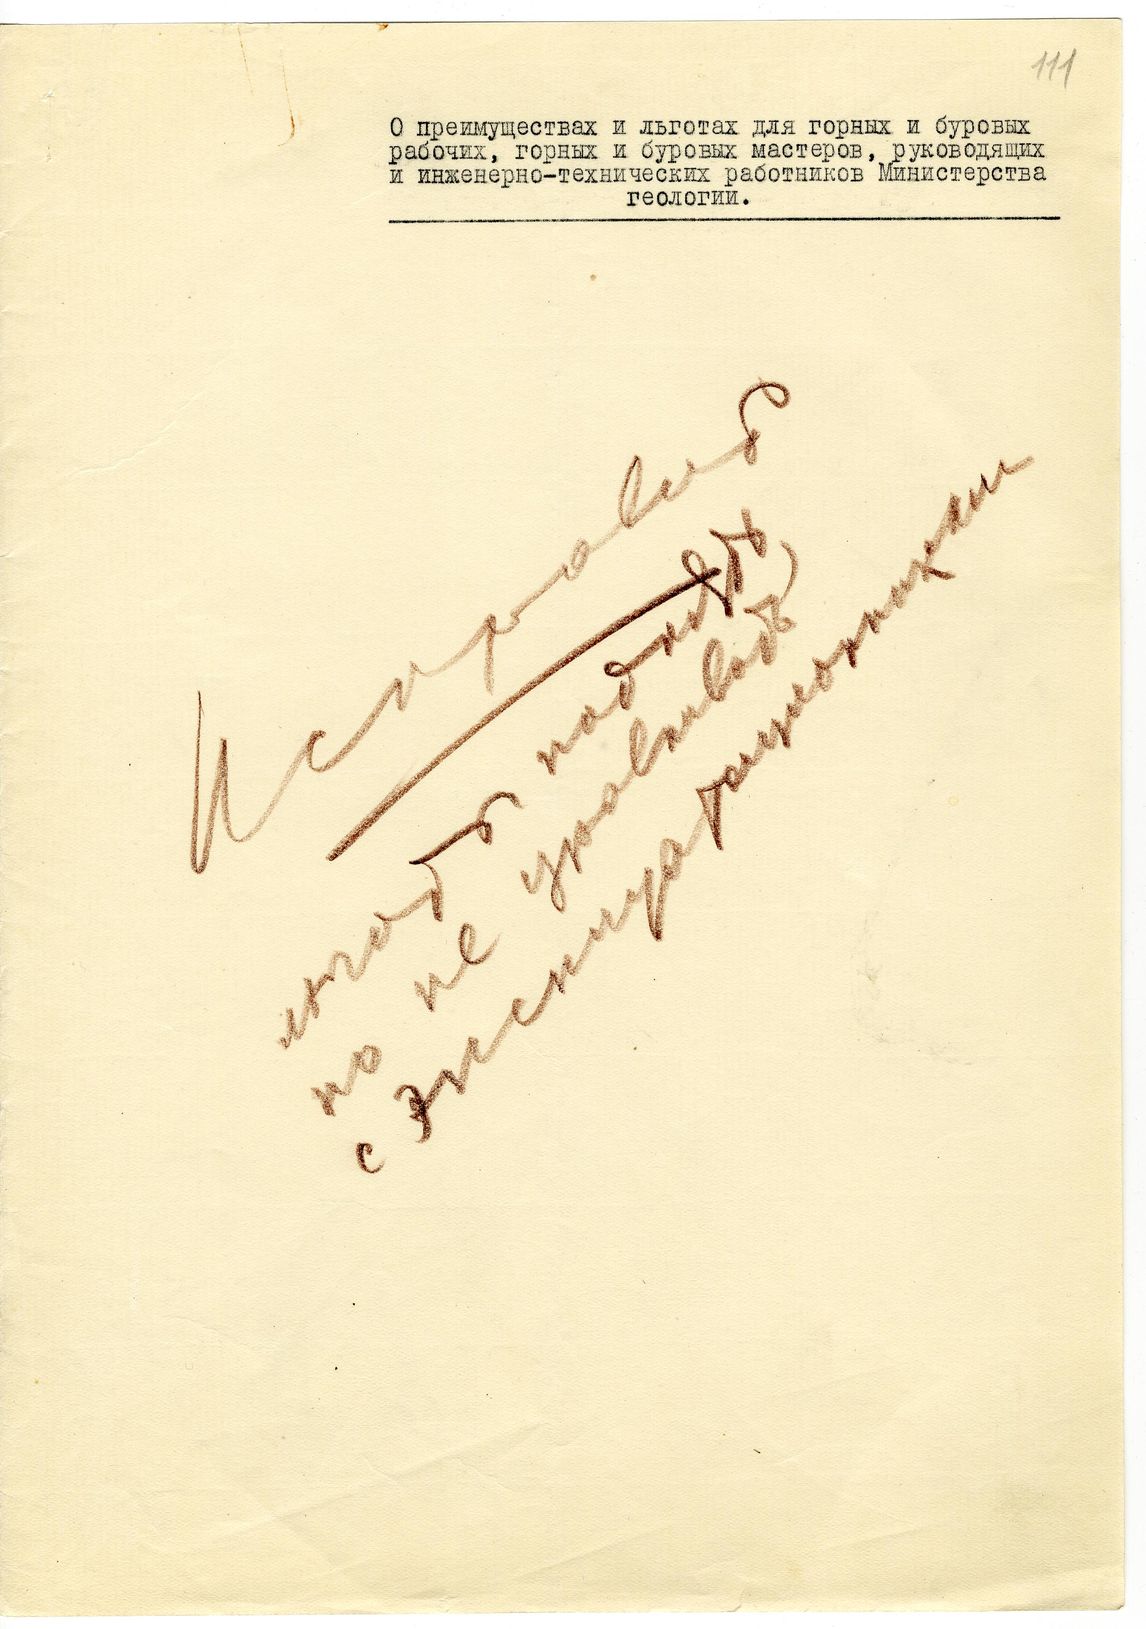 111
О преимуществах и льготах для горных и буровых
рабочих, горных и буровых мастеров, руководящих
и инженерно-технических работников Министерства
геологии.
Исправить
чтоб поднять
но не уравнивать
с эксплуатационниками